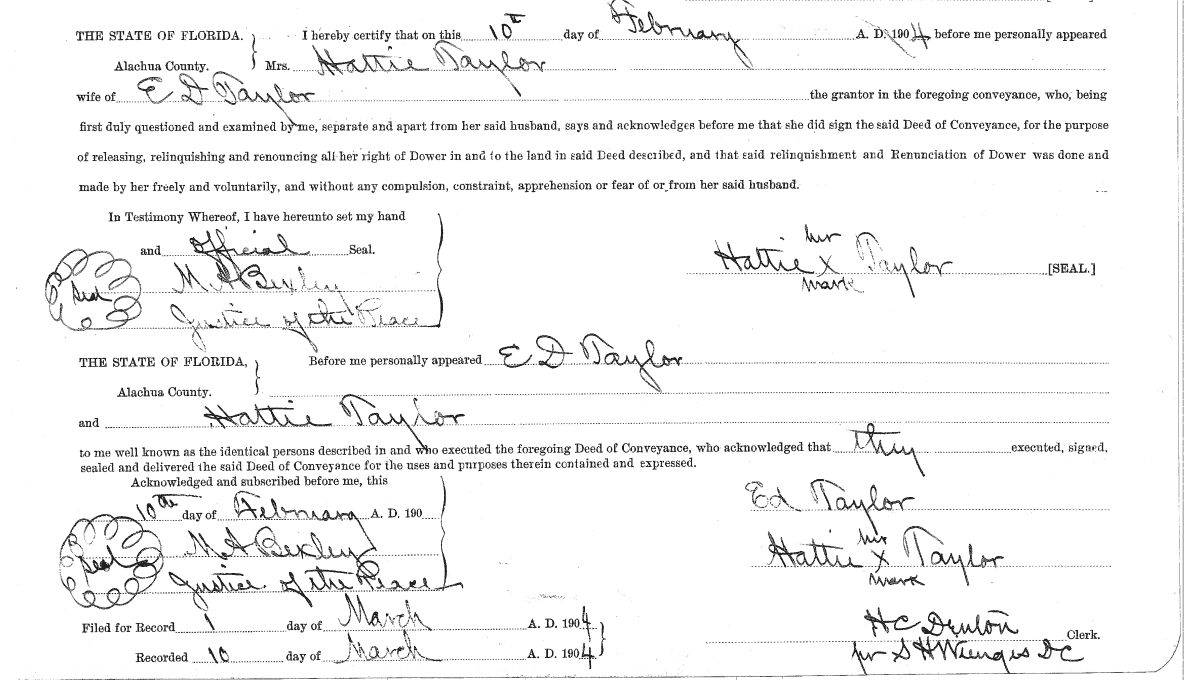 THE STATE OF FLORIDA. } I hereby certify that on this 10th day of February A. D. 1904 before me personally appeared
Alachua County. } Mrs. Hattie Taylor
wife of E D Taylor the grantor in the foregoing conveyance, who, being
first duly questioned and examined by me, separate and apart from her said husband, says and acknowledges before me that she did sign the said Deed of Conveyance, for the purpose
of releasing, relinquishing and renouncing all her right of Dower in and to the land in said Deed described, and that said relinquishment and Renunciation of Dower was done and
made by her freely and voluntarily, and without any compulsion, constraint, apprehension or fear of or from her said husband.
In Testimony Whereof, I have hereunto set my hand
and official Seal.
her
Hattie X Taylor [SEAL.]
mark
Seal
M A Bexley
Justice of the Peace
THE STATE OF FLORIDA, } Before me personally appeared E D Taylor
Alachua County. }
and Hattie Taylor
to me well known as the identical persons described in and who executed the foregoing Deed of Conveyance, who acknowledged that they executed, signed,
sealed and delivered the said Deed of Conveyance for the uses and purposes therein contained and expressed.
Acknowledged and subscribed before me, this
10th day of February A. D. 190
Ed Taylor
Seal
M A Bexley
her
Hattie X Taylor
mark
Justice of the Peace
Filed for Record 1 day of March A. D. 1904
H C Denton Clerk.
Recorded 10 day of March A. D. 1904
per S H Wienges DC